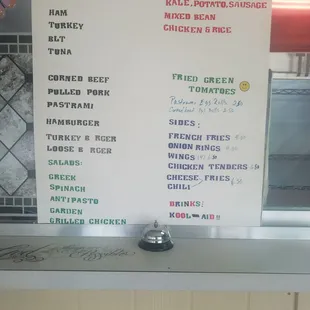 KALE, POTATO, SAUSAGE
MIXED BEAN
CHICKEN & RICE
HAM
TURKEY
BLT
TUNA
CORNED BEEF
PULLED PORK
PASTRAMI
HAMBURGER
TURKEY B RGER
LOOSE B RGER
SALADS:
GREEK
SPINACH
ANTIPASTO
GARDEN
GRILLED CHICKEN
FRIED GREEN
TOMATOES
Pastrami Egg Rolls
SIDES:
FRENCH FRIES
ONION RINGS
WINGS
CHICKEN TENDERS
CHEESE FRIES
CHILI
DRINKS:
KOOL-AID!!